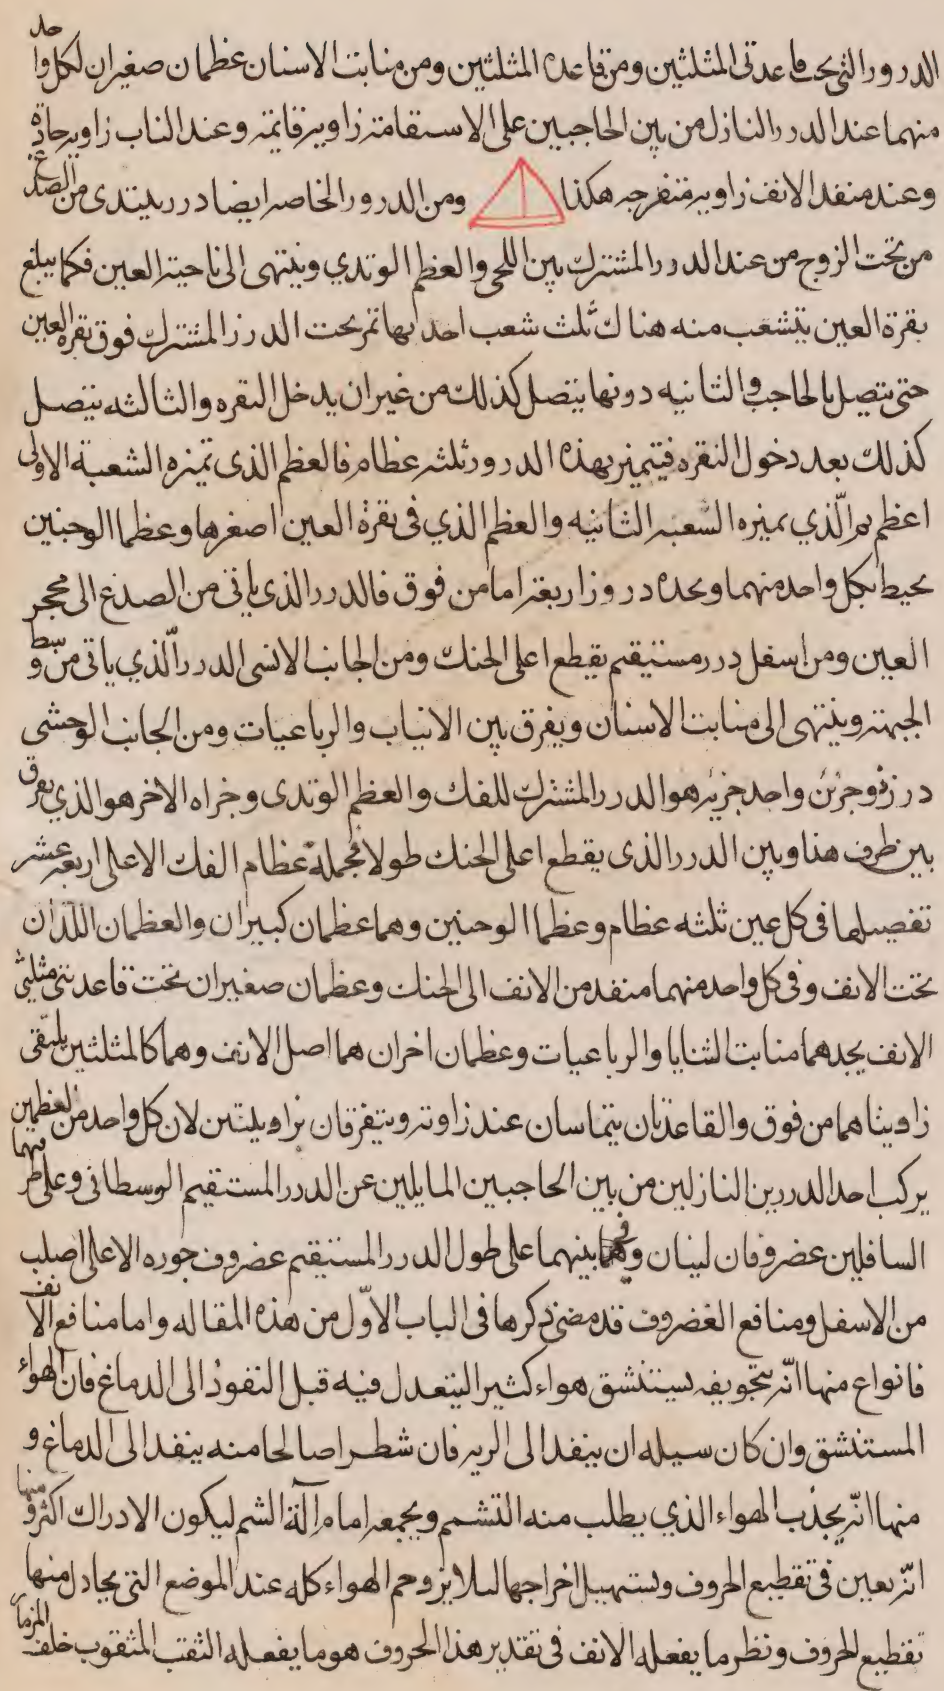 الدرور التى تحت قاعدتى المثلثين ومن قاعدة المثلثين ومن منابت الاسنان عظمان صغيران لكل واحد
منهما عند الدرر النازل من بين الحاجبين على الاستقامة زاوية قايمة وعند الناب زاوية حادة
وعند منفذ الانف زاوية منفرجة هكذا ومن الدرور الخاصة ايضا درر يبتدى من الصدغ
من تحت الزوج من عند الدرر المشترك بين اللحى والعظم الوتدي وينتهى الى ناحية العين فكما يبلغ
نقرة العين يتشعب منه هناك ثلث شعب احديها تمر تحت الدرز المشترك فوق نقرة العين
حتى يتصل بالحاجب والثانيه دونها يتصل كذلك من غير ان يدخل النقره والثالثه يتصل
كذلك بعد دخول النقره فيتميز بهذه الدرور ثلثة عظام فالعظم الذى تميزه الشعبة الاولى
اعظم ثم الّذي يميزه الشعبة الثانيه والعظم الذي فى نقرة العين اصغرها وعظما الوجنين
يحيط بكل واحد منهما ويحده دروز اربعة اما من فوق فالدرر الذي ياتى من الصدغ الى محجر
العين ومن اسفل درر مستقيم يقطع اعلى الحنك ومن الجانب الانسى الدرر الّذي ياتى من وسط
الجبهة وينتهى الى منابت الاسنان ويفرق بين الانياب والرباعيات ومن الجانب الوحشى
درز ذو جزئن واحد جزئه هو الدرر المشترك للفك والعظم الوتدى وجزاه الاخر هو الذي يفرق
بين طرف هذا وبين الدرر الذى يقطع اعلى الحنك طولا فجملة عظام الفك الاعلى اربعة عشر
تفصيلها فى كل عين ثلثه عظام وعظما الوجنين وهما عظمان كبيران والعظمان اللذان
تحت الانف وفى كل واحد منهما منفذ من الانف الى الحنك وعظمان صغيران تحت قاعدتى مثلثى
الانف يحدهما منابت الثنايا والرباعيات وعظمان اخران هما اصل الانف وهما كالمثلثين يلتقى
زاويتاهما من فوق والقاعدتان يتماسان عند زاوية ويتفرقان بزاويتين لان كل واحد من العظمين
يركب احد الدررين النازلين من بين الحاجبين المايلين عن الدرر المستقيم الوسطانى وعلى طرفيهما
السافلين غضروفان لينان وفيما بينهما على طول الدرر المستقيم غضروف جوره الاعلى اصلب
من الاسفل ومنافع الغضروف قد مضى ذكرها فى الباب الاوّل من هذه المقاله واما منافع الانف
فانواع منها انّه بتجويفه يستنشق هواء كثيرا ليتعدل فيه قبل النفوذ الى الدماغ فان الهواء
المستنشق وان كان سبيله ان ينفد الى الريه فان شطرا صالحا منه ينفد الى الدماغ و
منها انّه يجذب الهواء الذي يطلب منه التشمم ويجمعه امام آلة الشم ليكون الادراك اكثر ومنها
انّه يعين فى تقطيع الحروف وتسهيل اخراجها لىلا يزدحم الهواء كله عند الموضع التى يحاول منها
تقطيع الحروف ونظر ما يفعله الانف فى تقدير هذا الحروف هو ما يفعله الثقب المثقوب خلف المزمار